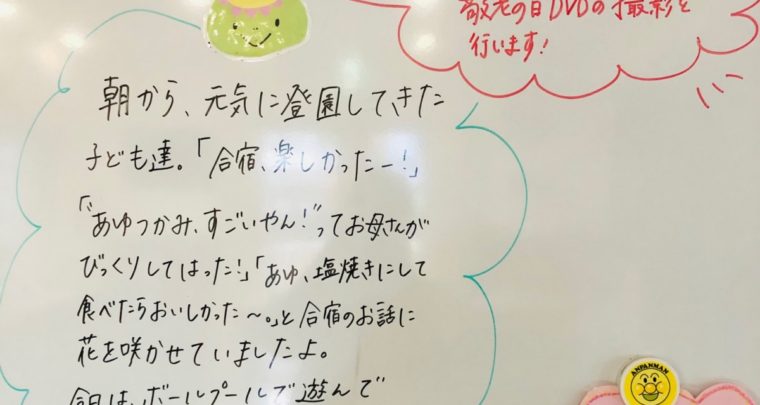 敬老の日DVDの撮影を
行います!
朝から、元気に登園してきた
子ども達。「合宿、楽しかったー!」
「"あゆつかみ、すごいやん!"ってお母さんが
びっくりしてはった!」「あゆ、塩焼きにして
食べたらおいしかった〜。」と合宿のお話に
花を咲かせていましたよ。
今日は、ボールプールで遊んで
ANPANMAN